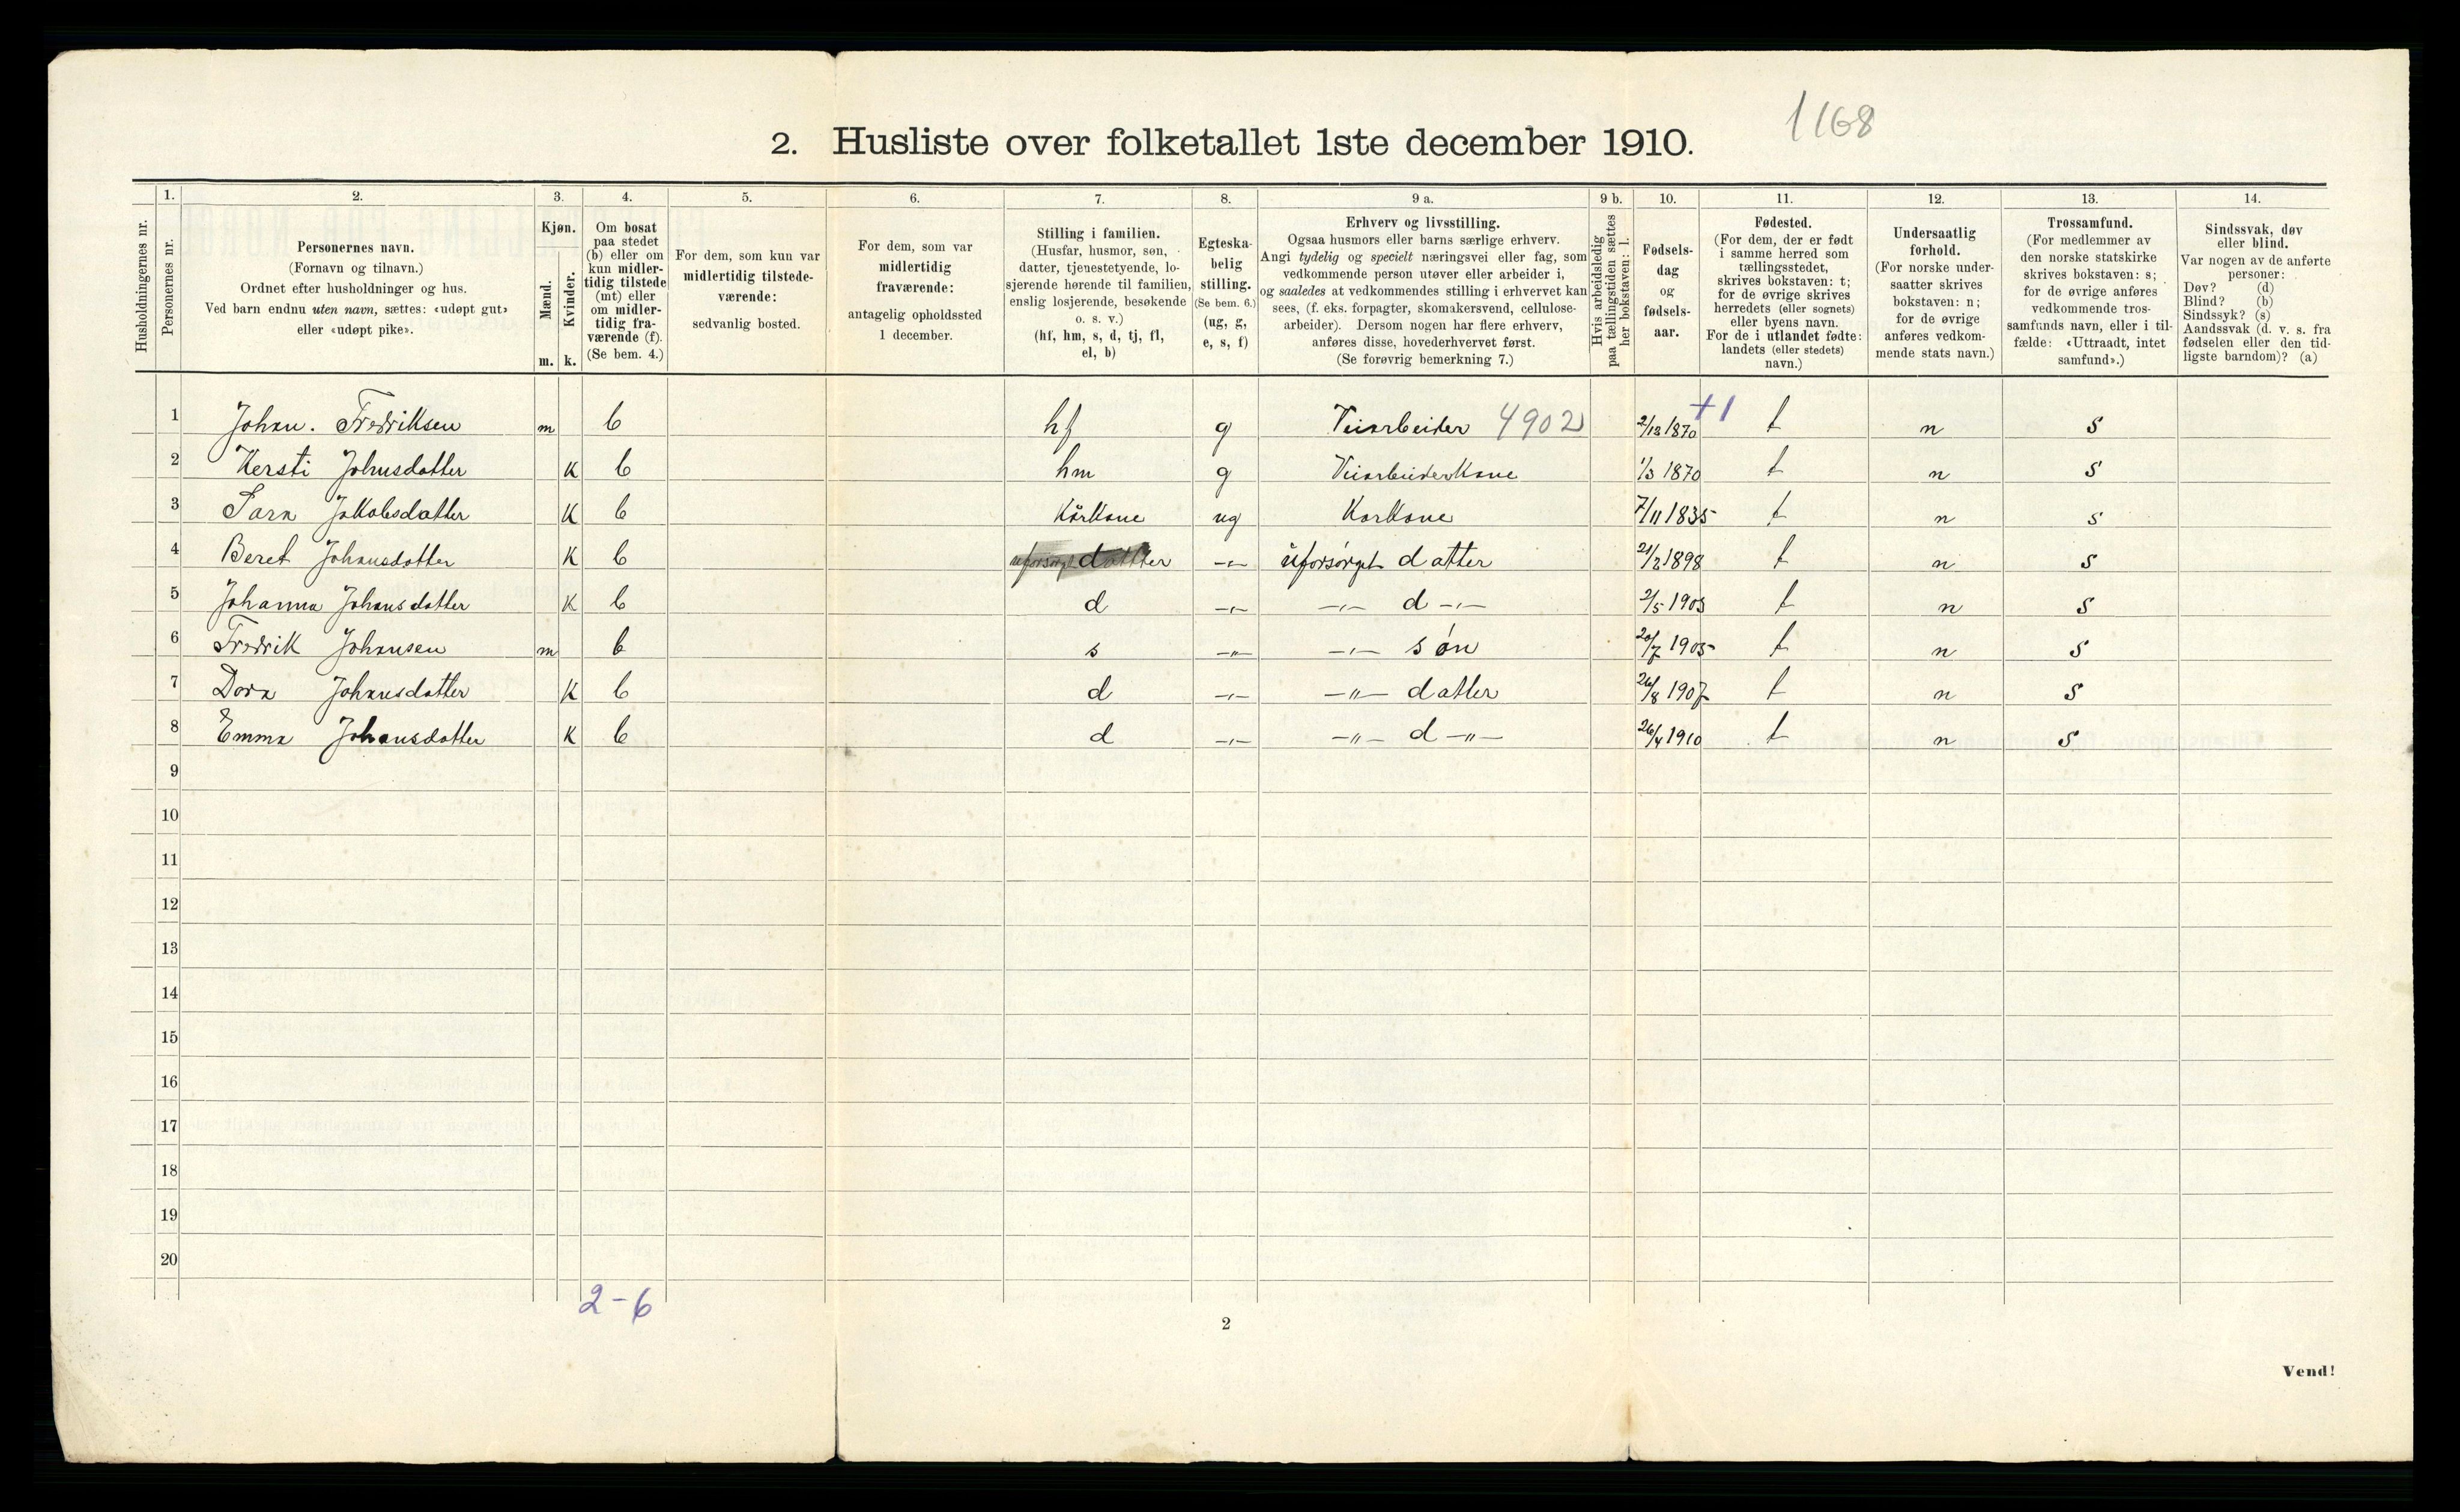 1168
2. Husliste over folketallet 1ste december 1910.
Husholdningernes nr.
1.
Personernes nr.
2.
Personernes navn.
(Fornavn og tilnavn.)
Ordnet efter husholdninger og hus.
Ved barn endnu uten navn, sættes: «udøpt gut»
eller «udøpt pike».
3.
Kjøn.
Mænd.
m.
Kvinder.
k.
4.
Om bosat
paa stedet
(b) eller om
kun midler-
tidig tilstede
(mt) eller
om midler-
tidig fra-
værende (f).
(Se bem. 4.)
5.
For dem, som kun var
midlertidig tilstede-
værende:
sedvanlig bosted.
6.
For dem, som var
midlertidig
fraværende:
antagelig opholdssted
1 december.
7.
Stilling i familien.
(Husfar, husmor, søn,
datter, tjenestetyende, lo-
sjerende hørende til familien,
enslig losjerende, besøkende
o. s. v.)
(hf, hm, s, d, tj, fl,
el, b)
8.
Egteska-
belig
stilling.
(Se bem. 6.)
(ug, g,
e, s, f)
9 a.
Erhverv og livsstilling.
Ogsaa husmors eller barns særlige erhverv.
Angi tydelig og specielt næringsvei eller fag, som
vedkommende person utøver eller arbeider i,
og saaledes at vedkommendes stilling i erhvervet kan
sees, (f. eks. forpagter, skomakersvend, cellulose-
arbeider). Dersom nogen har flere erhverv,
anføres disse, hovederhvervet først.
(Se forøvrig bemerkning 7.)
9 b.
Hvis arbeidsledig
paa tællingstiden sættes
her bokstaven: l.
10.
Fødsels-
dag
og
fødsels-
aar.
11.
Fødested.
(For dem, der er født
i samme herred som
tællingsstedet,
skrives bokstaven: t;
for de øvrige skrives
herredets (eller sognets)
eller byens navn.
For de i utlandet fødte:
landets (eller stedets)
navn.)
12.
Undersaatlig
forhold.
(For norske under-
saatter skrives
bokstaven: n;
for de øvrige
anføres vedkom-
mende stats navn.)
13.
Trossamfund.
(For medlemmer av
den norske statskirke
skrives bokstaven: s;
for de øvrige anføres
vedkommende tros-
samfunds navn, eller i til-
fælde: «Uttraadt, intet
samfund».)
14.
Sindssvak, døv
eller blind.
Var nogen av de anførte
personer:
Døv? (d)
Blind? (b)
Sindssyk? (s)
Aandssvak (d. v. s. fra
fødselen eller den tid-
ligste barndom)? (a)
1 Johan. Fredriksen m b hf g Veiarbeider 4902 2/12 1870 +1 t n s
2 Kersti Johnsdatter K b hm g Veiarbeiderkone 1/3 1870 t n s
3 Sara Jakobsdatter K b Kårkone ug Korkone 7/11 1835 t n s
4 Beret Johansdatter K b uforsørget datter -"- uforsørget datter 21/2 1898 t n s
5 Johanna Johansdatter K b d -"- -"- d -"- 2/5 1903 t n s
6 Fredrik Johansen m b s -"- -"- søn 20/7 1905 t n s
7 Dora Johansdatter K b d -"- -"- datter 26/8 1907 t n s
8 Emma Johansdatter K b d -"- -"- d -"- 26/4 1910 t n s
9
10
11
12
13
14
15
16
17
18
19
20
2-6
2
Vend!